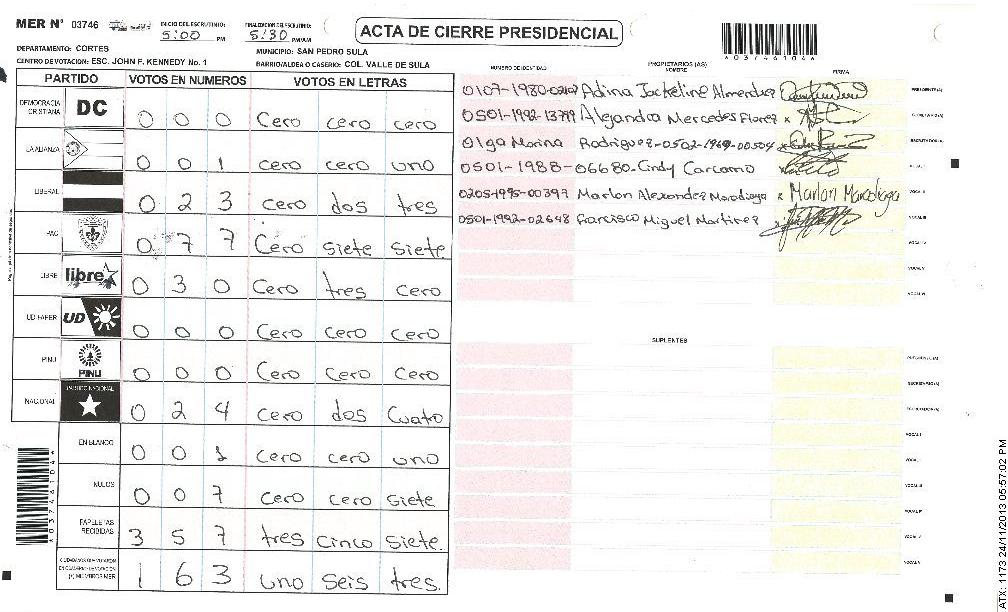 MER N° 03746
INICIO DEL ESCRUTINIO: 5:00 PM
FINALIZACION DEL ESCRUTINIO: 5:30 PM/AM
ACTA DE CIERRE PRESIDENCIAL
DEPARTAMENTO: CORTES
MUNICIPIO: SAN PEDRO SULA
CENTRO DE VOTACION: ESC. JOHN F. KENNEDY No. 1
BARRIO/ALDEA O CASERIO: COL. VALLE DE SULA
PARTIDO VOTOS EN NUMEROS VOTOS EN LETRAS
DEMOCRACIA CRISTIANA DC 0 0 0 Cero cero cero
LA ALIANZA 0 0 1 cero cero uno
LIBERAL 0 2 3 cero dos tres
PAC 0 7 7 Cero siete siete
LIBRE libre 0 3 0 Cero tres cero
UD FAPER UD 0 0 0 Cero Cero cero
PINU PINU 0 0 0 Cero Cero Cero
NACIONAL PARTIDO NACIONAL 0 2 4 cero dos Cuato
EN BLANCO 0 0 1 cero cero uno
NULOS 0 0 7 cero cero siete
PAPELETAS RECIBIDAS 3 5 7 tres cinco siete.
1 6 3 uno seis tres.
NUMERO DE IDENTIDAD
PROPIETARIOS (AS)
NOMBRE
FIRMA
Adina Jackeline Almendarez PRESIDENTE(A)
0501-1992-13799 Alejandra Mercedes Flores x SECRETARIO(A)
Olga Marina Rodriguez-0502-1969-00504 x ESCRUTADOR(A)
0501-1988-06680-Cindy Carcamo VOCAL I
0205-1995-00397 Marlon Alexander Maradiaga x Marlon Maradiaga VOCAL II
0501-1992-02648 Francisco Miguel Martinez VOCAL III
VOCAL IV
VOCAL V
VOCAL VI
SUPLENTES
PRESIDENTE(A)
SECRETARIO(A)
ESCRUTADOR(A)
VOCAL I
VOCAL II
VOCAL III
VOCAL IV
VOCAL V
ATX: 1173 24/11/2013 05:57:02 PM